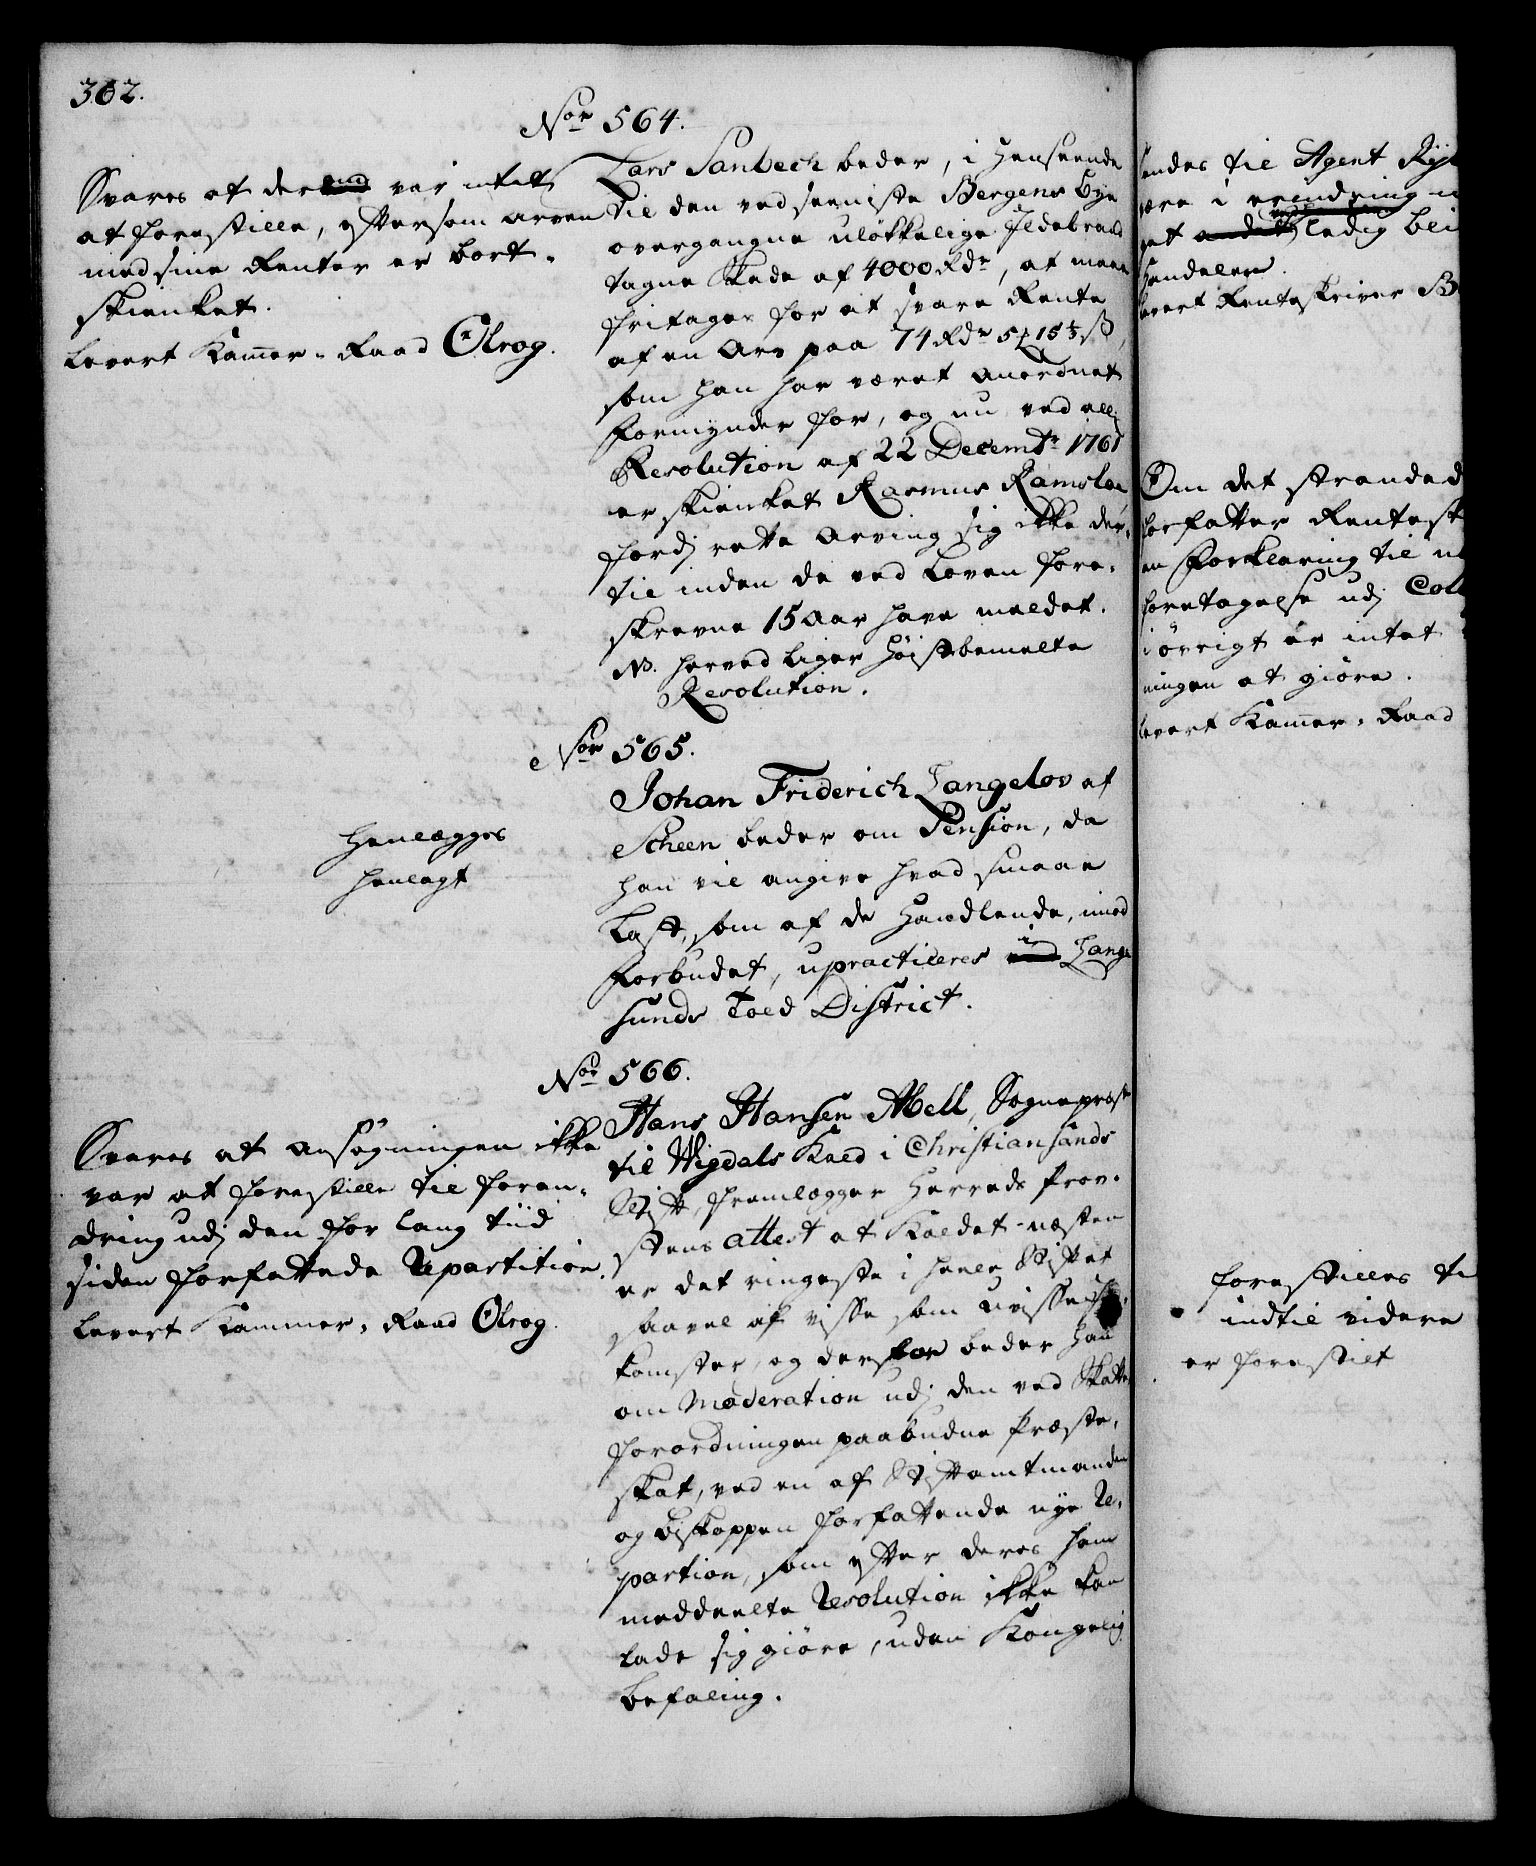 302.
Nor 564.
Svares at der var intet
at forestille, eftersom Arven
med sine Renter er bort-
skienket.
Levert Kammer-Raad Olrog.
Lars Sanbech beder, i Henseende
til den ved seeniste Bergens Bye
overgangne ulökkelige Ildebrand
tagne Skade af 4000 Rdr, at maae
fritages for at svare Rente
af en Arv paa 74 Rdr 5 15½ ß,
som han har været anordnet
Formynder for, og nu ved all
Resolution af 22 Decembr 1761
er skienket Rasmus
fordj rette Arving sig ikke der-
til inden de ved Loven fore-
skrevne 15 Aar have meldet.
NB. herved liger höistbemelte
Resolution.
Nor 565.
Henlægges
henlagt
Johan Friderich Langelov af
Scheen beder om Pension, da
han vil angive hvad smaae
Last, som af de Handlende, imod
Forbudet, upracticeres i Lange
sunds Told District.
Nor 566.
Svares at ansögningen ikke
var at forestille til foran-
dring udj den for lang tiid
siden forfattede Repartition.
Levert Kammer-Raad Olrog.
Hans Hansen Abell, Sognepræst
til Wigedals Kald i Christiansands
Stift, fremlægger Herreds Prov-
stens attest at Kaldet næsten
er det ringeste i heele Stiftet
saavel af visse som uvisse
komster, og derfor beder han
om Moderation udj den ved Skatte
forordningen paabudne Præste-
skat, ved en af Stiftamtmanden
og Biskoppen forfattende nye Re-
partion, som efter deres ham
meddeelte Resolution ikke kan
lade sig giöre, uden Kongelig
befaling.
endes til Agent
være i erindring
get ledig bli
Handelen.
Levert Renteskriver B
Om det strandede
forfatter Rentesk
en Forklaring til
foretagelse udj Coll
i övrigt er intet
ningen at giöre.
Levert Kammer-Raad
forestilles ti
indtil videre
er forestilt